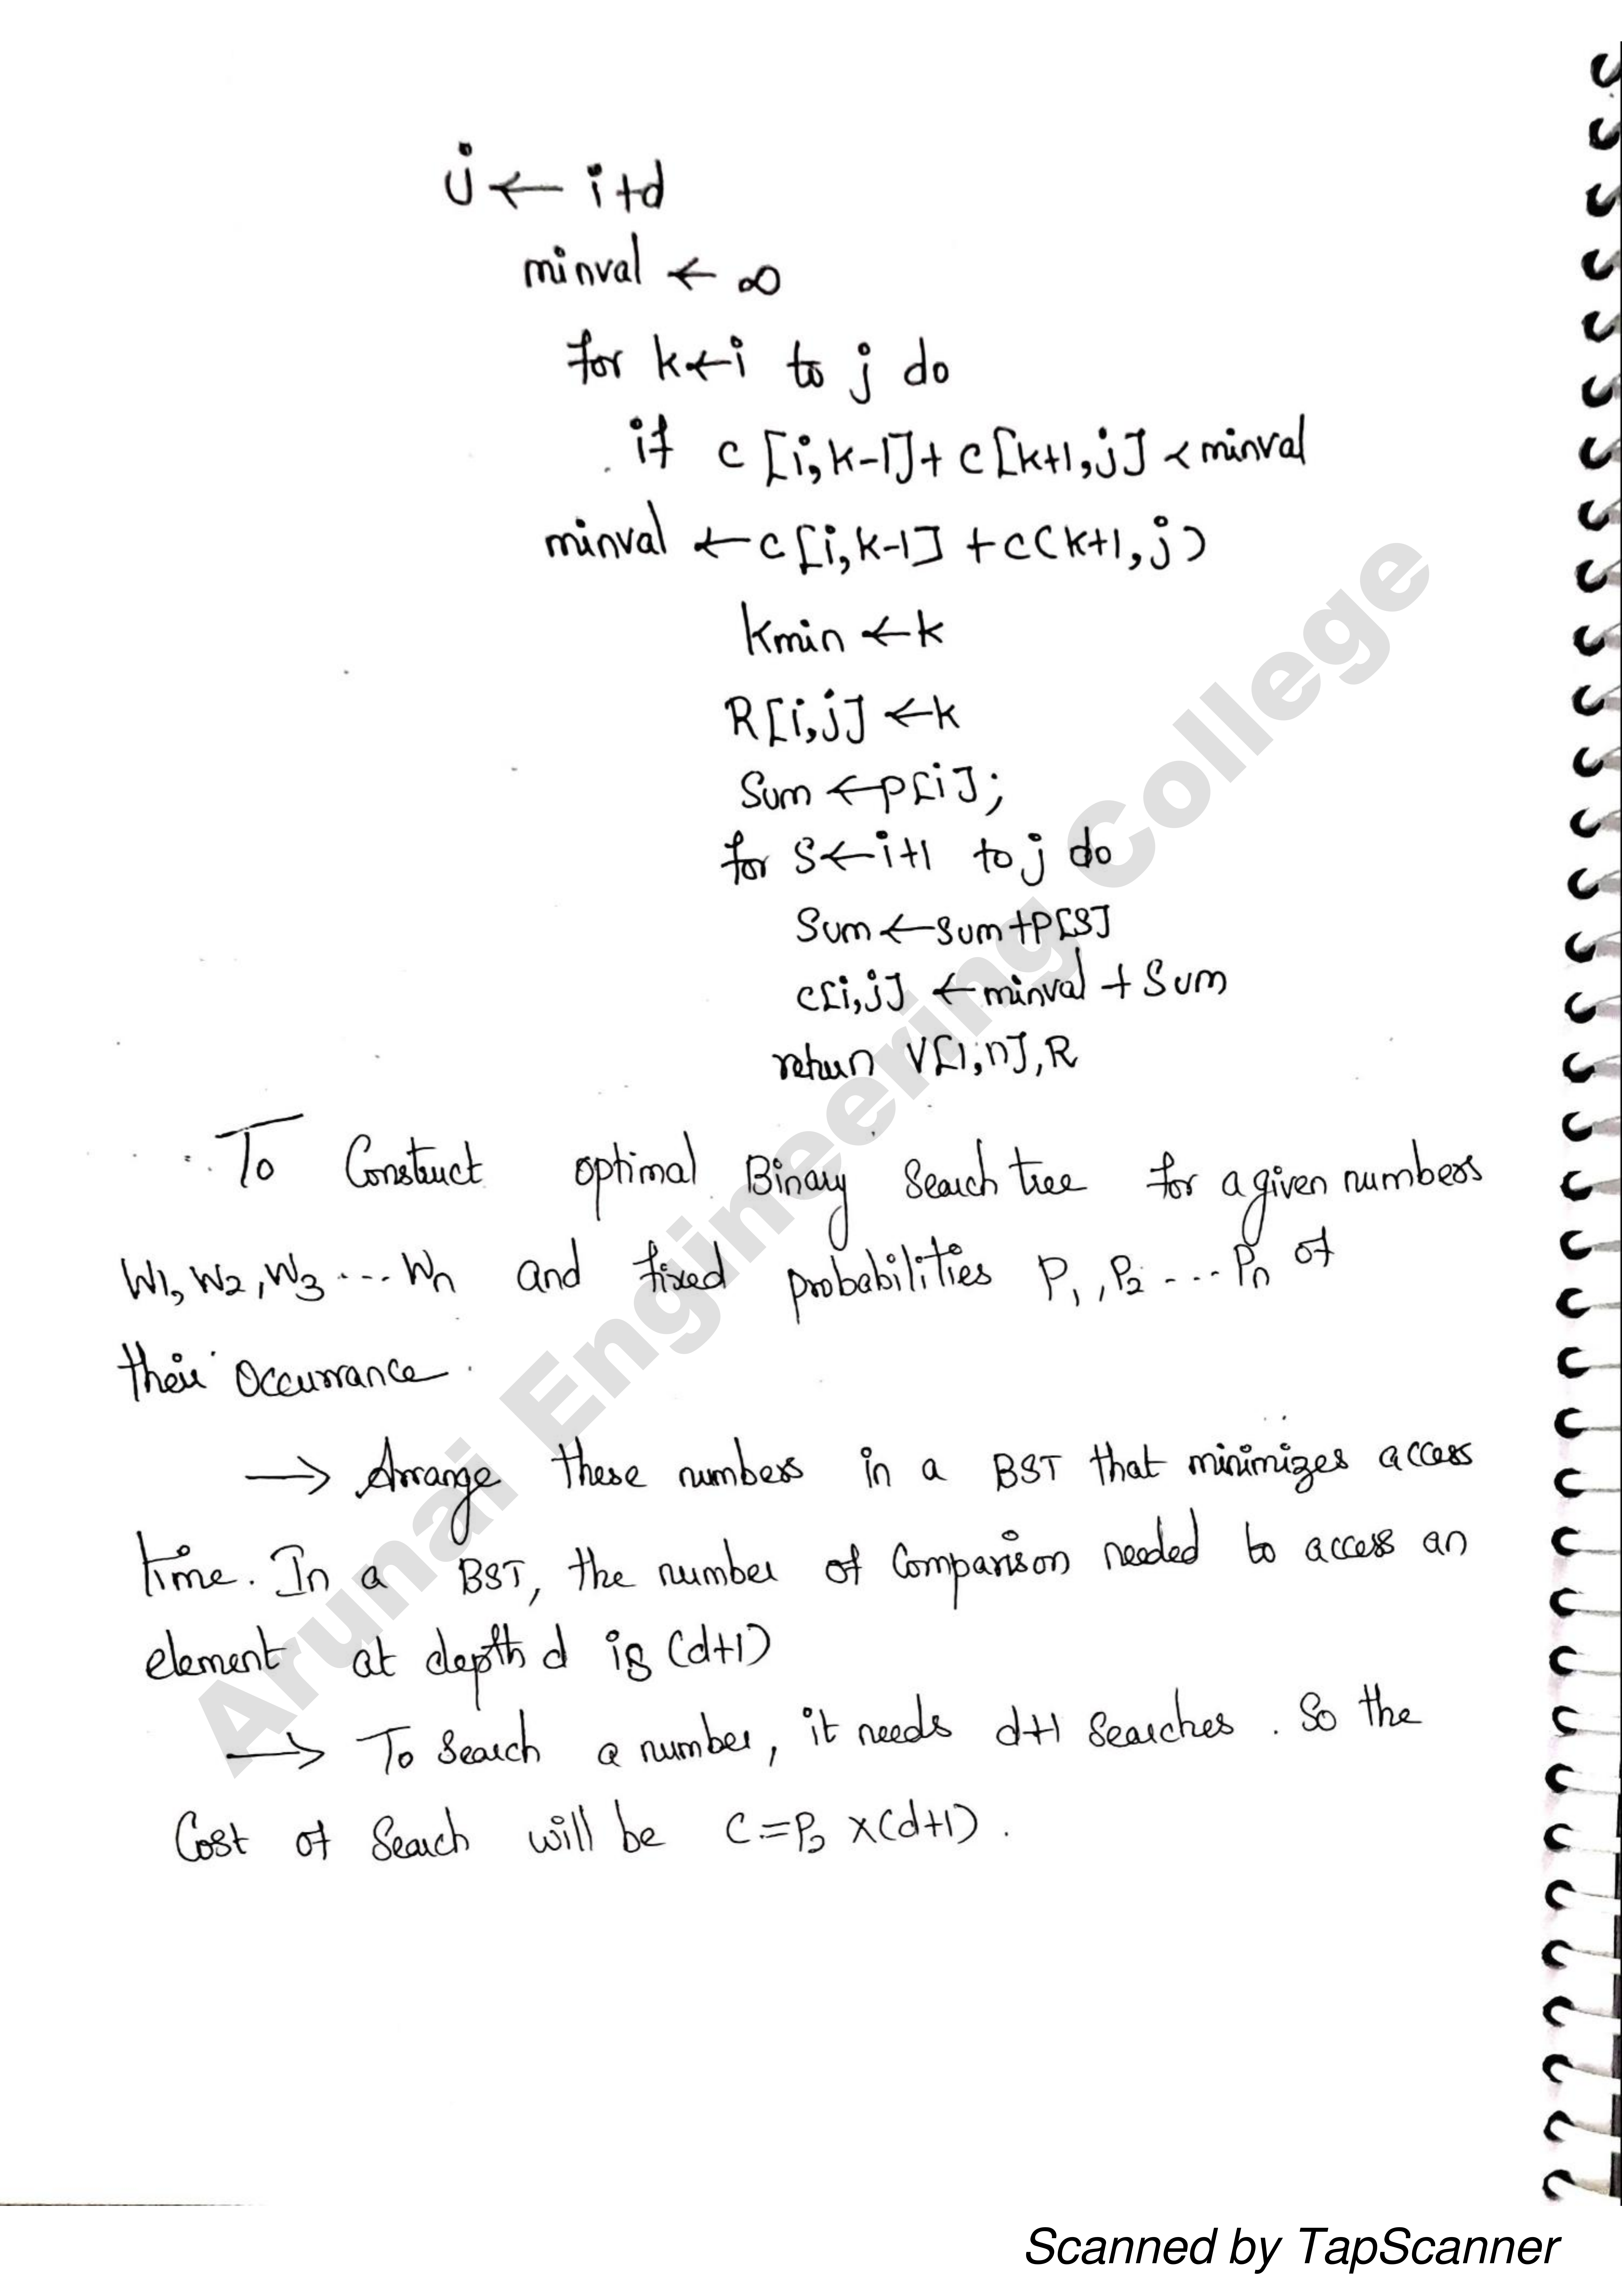 j ← i+d
minval ← ∞
for k←i to j do
if c [i, k-1] + c [k+1, j] < minval
minval ← c [i, k-1] + c(k+1, j)
kmin ← k
R[i,j] ← k
Sum ← p[i];
for S ← i+1 to j do
Sum ← sum+P[S]
c[i,j] ← minval + Sum
return V[1,n], R
To Construct optimal Binary Search tree for a given numbers
W1, W2, W3 .... Wn and fixed probabilities P1, P2 .... Pn of
their Occurrance.
→ Arrange these numbers in a BST that minimizes access
time. In a BST, the number of comparison needed to access an
element at depth d is (d+1)
→ To Search a number, it needs d+1 searches. So the
Cost of Search will be C = P ×(d+1).
Arunai Engineering College
Scanned by TapScanner